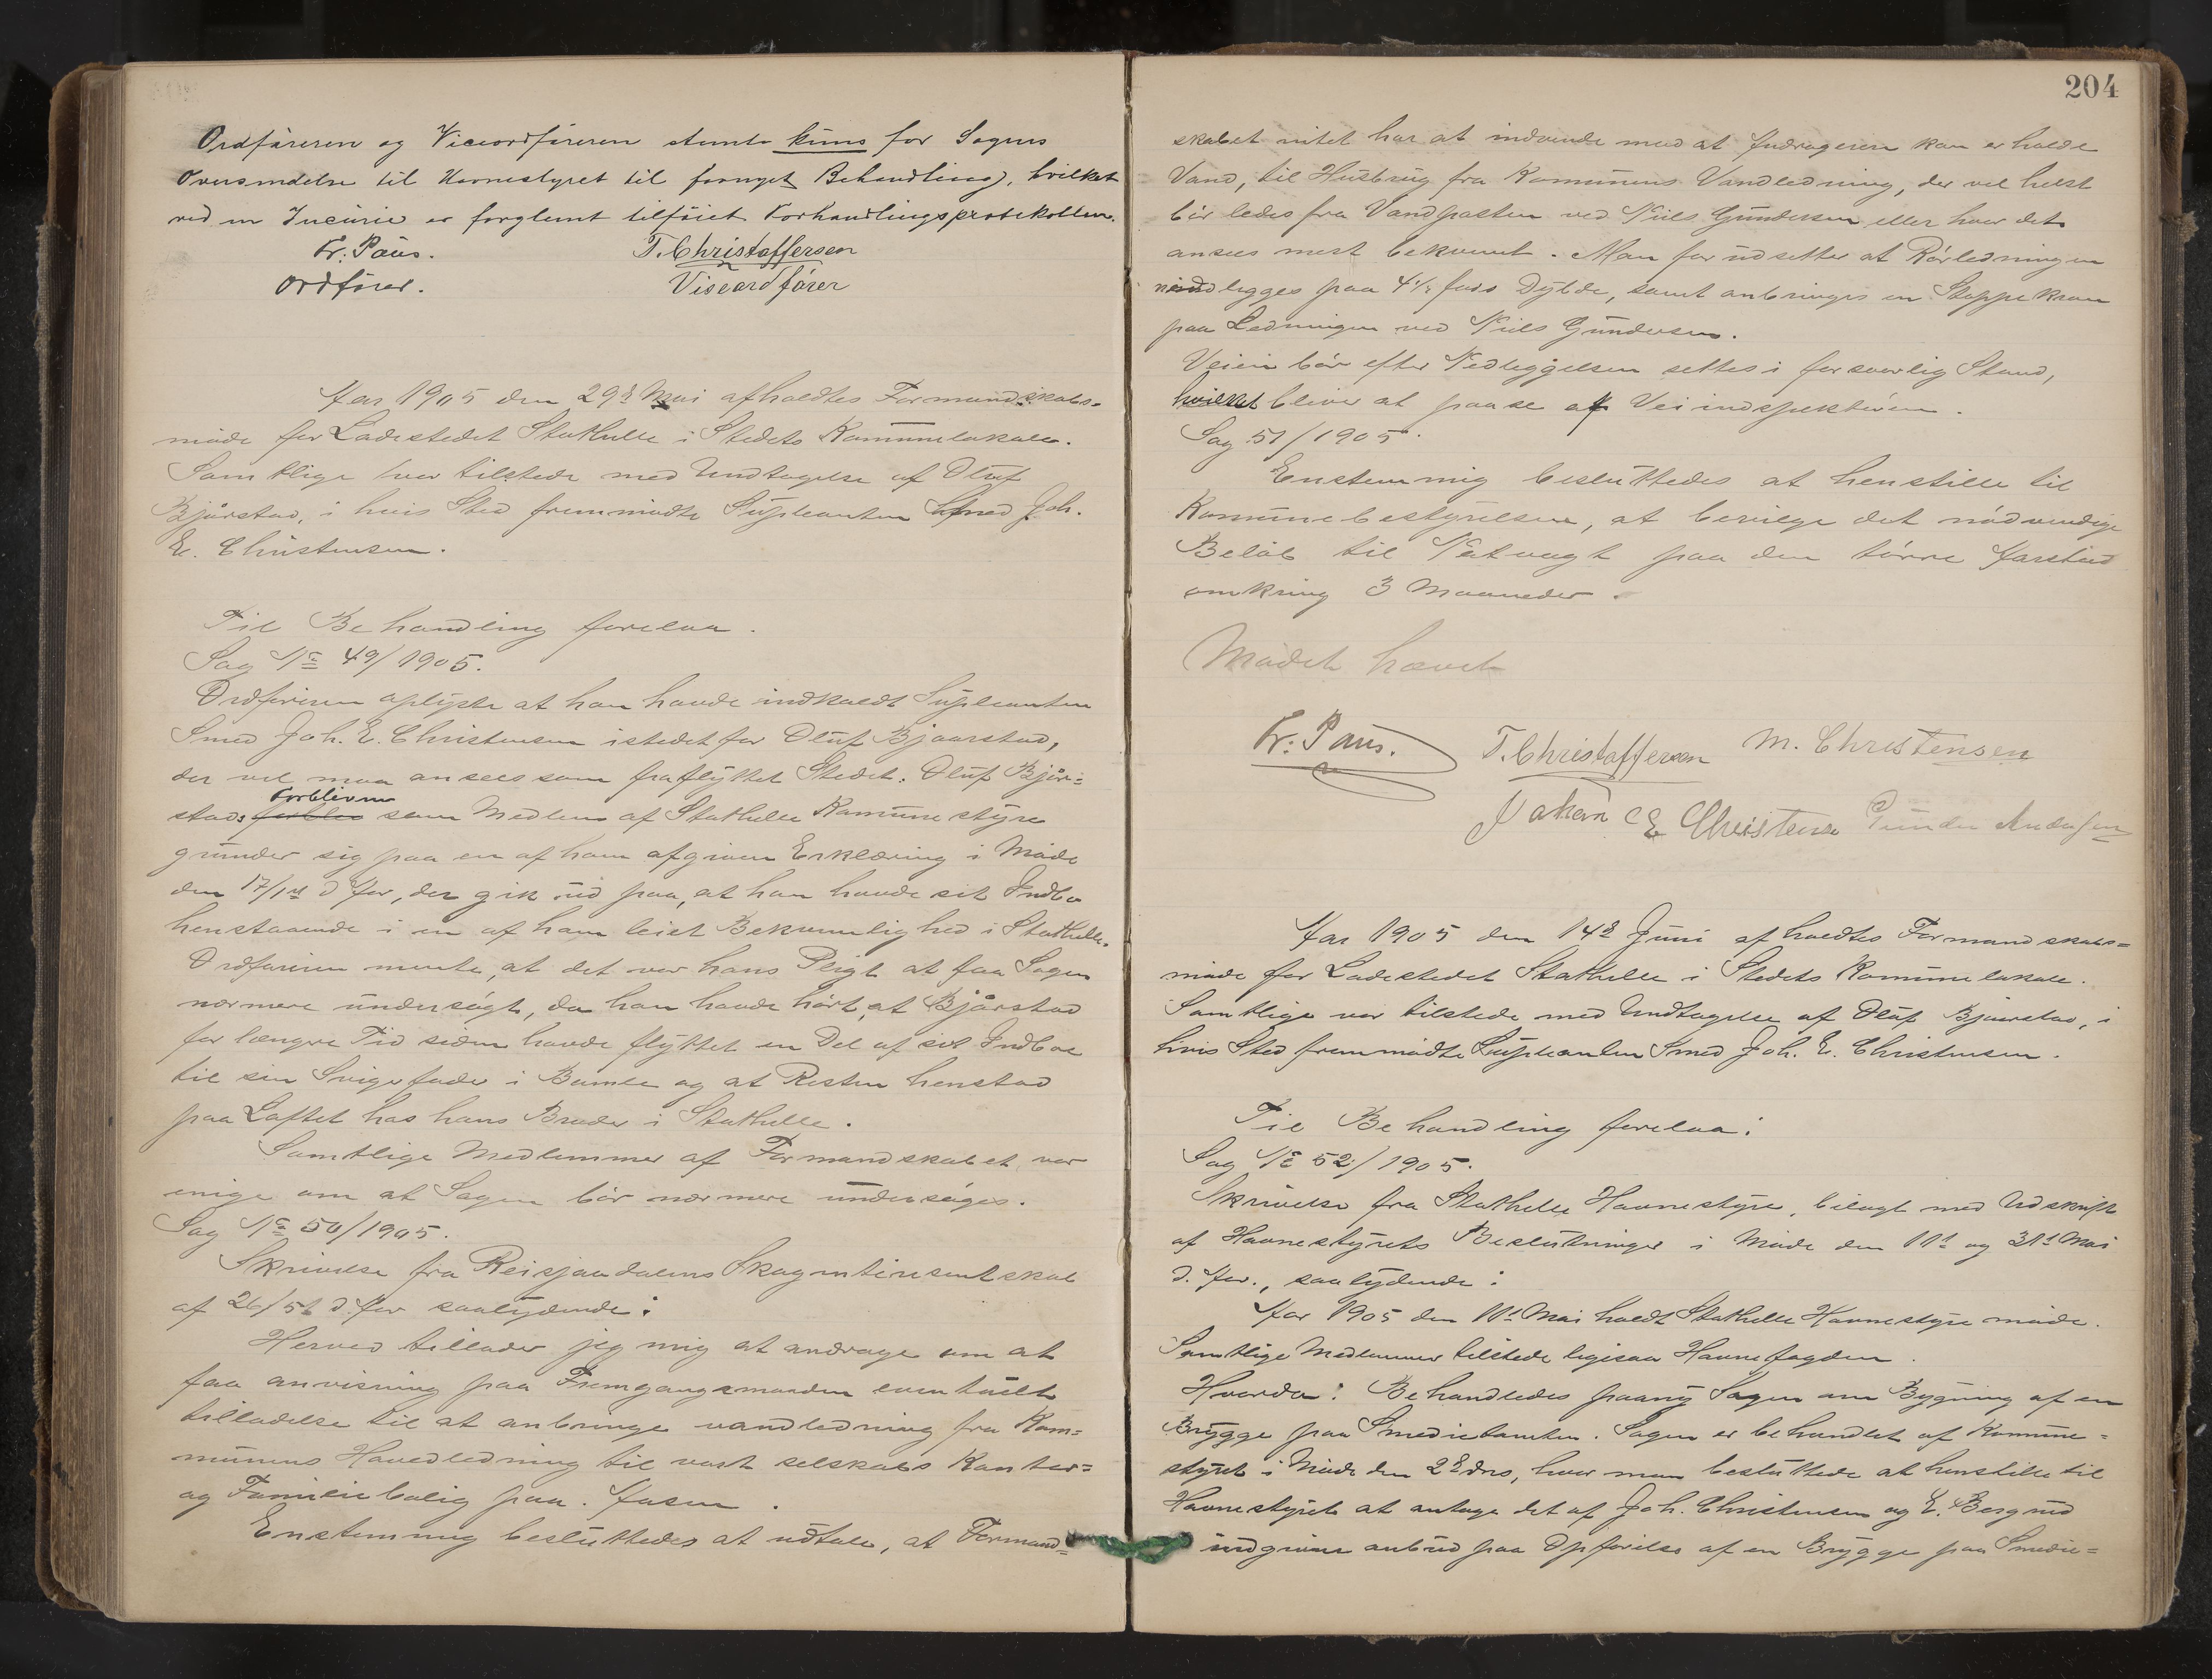 Ordføreren og Viceordføreren stemte kuns for Sagens
Oversendelse til Havnestyret til fornyet Behandling, hvilket
ved en Incurie er forglemt tilføiet Forhandlingsprotokollen.
Fr. Paus. T. Christoffersen
Ordfører. Viseordfører
Aar 1905 den 29d Mai afholdtes Formandskabs-
møde for Ladestedet Stathelle i Stedets Kommunelokale.
Samtlige var tilstede med Undtagelse af Oluf
Bjørstad, i hvis Sted fremmødte Supleanten Smed Joh.
E. Christensen.
Til Behandling forelaa.
Sag No 49/1905.
Ordføreren oplyste at han havde indkaldt Supleanten
Smed Joh. E. Christensen istedetfor Oluf Bjaarstad,
der vel maa ansees som fraflyttet Stedet. Oluf Bjør-
forbliven
stads som Medlem af Stathelle Kommunestyre
grunder sig paa en af ham afgiven Erklæring i Møde
den 17/1st d Aar, der gik ud paa, at han havde sit Indbo
henstaaende i en af ham leiet Bekvemlighed i Stathelle.
Ordføreren mente, at det var hans Pligt at faa Sagen
nærmere undersøgt, da han havde hørt, at Bjårstad
for længre Tid siden havde flyttet en Del af sit Indboe
til sin Svigerfader i Bamle og at Resten henstod
paa Loftet hos hans Broder i Stathelle.
Samtlige Medlemmer af Formandskabet var
enige om at Sagen bør nærmere undersøges.
Sag No 50/1905.
Skrivelse fra
af 26/5d d. Aar saalydende:
Herved tillader jeg mig at andrage om at
faa anvisning paa Fremgangsmaaden eventuelt
tilladelse til at anbringe vandledning fra Kom-
munens Hovedledning til vort selskabs Kontor-
og Familiebolig paa. Aasen.
Enstemmig besluttedes at udtale, at Formand-
204
skabet intet har at indvende mod at Andrageren kan erholde
Vand, til Husbrug fra Komunens Vandledning, der vel helst
bør ledes fra Vandposten ved Niels Gundersen eller hvor det
ansees mest bekvemt. Man forudsetter at Rørledningen
nedlegges paa 4½ fods Dybde, samt anbringes en Stoppekran
paa Ledningen ved Niels Gundersen.
Veien bør efter Nedleggelsen settes i forsvarlig Stand,
hvilket bliver at paase af Veiindspektøren.
Sag 51/1905.
Enstemmig besluttedes at henstille til
Komunebestyrelsen, at bevilge det nødvendige
Beløb til Natvagt paa den tørre Aarstid
omkring 3 Maaneder.
Mødet hævet
Fr. Paus. T. Christoffersen M. Christensen
Johan E Christensen Gunder Andersen
Aar 1905 den 14d Juni afholdtes Formandskabs-
møde for Ladestedet Stathelle i Stedets Komunelokale.
Samtlige var tilstede med Undtagelse af Oluf Bjaarstad, i
hvis Sted fremmødte Supleanten Smed Joh. E. Christensen.
Til Behandling forelaa:
Sag No 52/1905.
Skrivelse fra Stathelle Havnestyre, bilagt med Udskrift
af Havnestyrets Beslutninger i Møde den 11d og 31d Mai
d. Aar., saalydende:
Aar 1905 den 11d Mai holdt Stathelle Havnestyre møde.
Samtlige Medlemmer tilstede ligesaa Havnefogden.
Hvorda: Behandledes paany Sagen om Bygning af en
Brygge paa Smedietomten. Sagen er behandlet af Komune-
styret i Møde den 2d ds, hvor man besluttede at henstille til
Havnestyret at antage det af Joh. Christensen og E. Berg
indgivne anbud paa Opførelse af en Brygge paa Smedie-